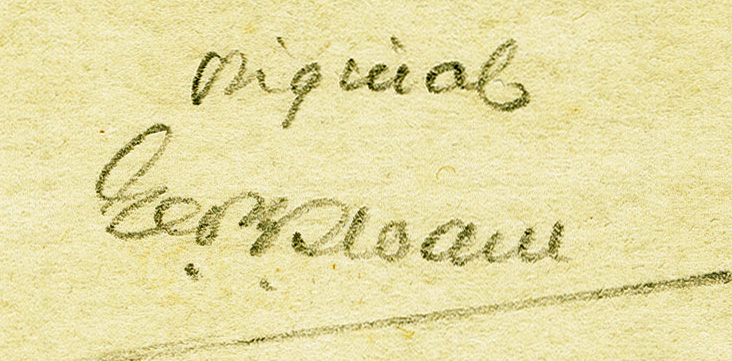 original
Geo. W. Sloane